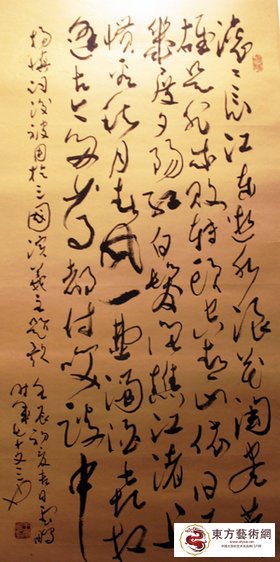 滚々长江东逝水浪花淘尽英
雄是非成败转头空青山依旧在
几度夕阳红白发渔樵江渚上
惯看秋月春风一壶浊酒喜相
逢古今多少事都付笑谈中
杨慎词后被用于三國演义主题歌
壬辰初夏吉日
東方藝術網